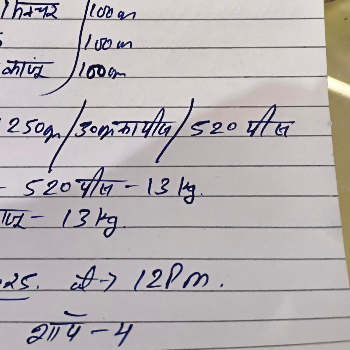 मिक्चर / 100gm
/ 100gm
काजू / 100gm
250gm / 30gmका पीस / 520 पीस
- 520 पीस - 13 kg.
- 13 kg.
25. से → 12 Pm.
शॉप - 4